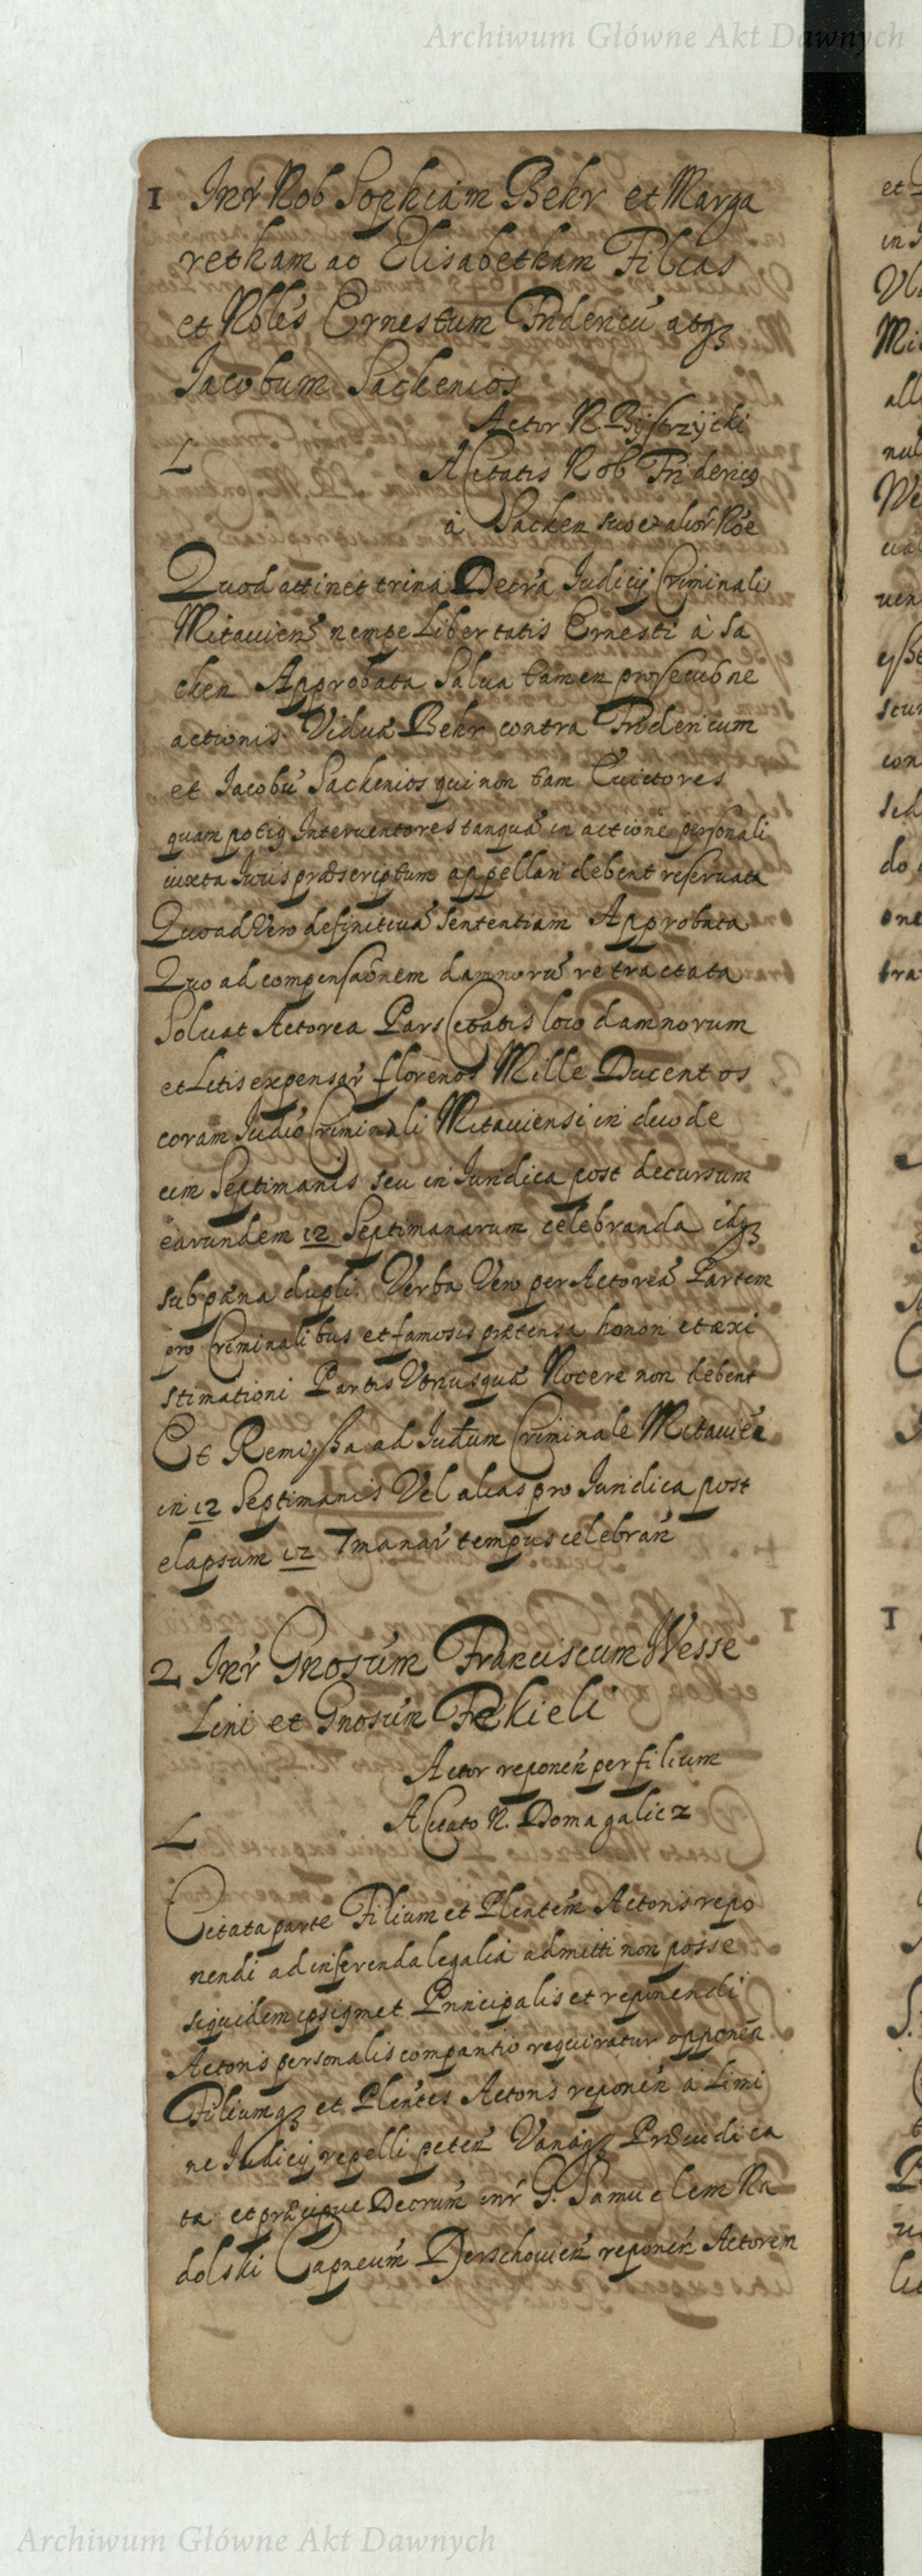 Archiwum Główne Akt Dawnych
1 Inr̃ Nob Sophiam Behr et Marga
retham ac Elisabetham Filias
et Nobles Ernestum Fridericũ atqꝫ
Jacobum Sackenios
Actor N Bystrzycki
L A Citatis Nob Friderico
à Sacken suo et alior̃ Nõe
Quod attinet trina Decra Judicij Criminalis
Mitauien̄ nempe Libertatis Ernesti à Sa
cken Approbata Salua tamen prosecutõne
actionis Viduæ Behr contra Fridericum
et Jacobũ Sackenios qui non tam Euictores
quam potiꝗ Interuentores tanquã in actione personali
iuxta Juris præscriptum appellari debent reseruata
Quoad Vero definitiuã Sententiam Approbata
Quo ad compensaõnem damnorũ retractata
Soluat Actorea Pars Citatis loco damnorum
et Litis expensar̃ florenos Mille Ducentos
coram Judiõ Criminali Mitauiensi in duode
cim Septimanis seu in Juridica post decursum
earundem 12 Septimanarum celebranda idqꝫ
sub pæna dupli. Verba Vero per Actoreã Partem
pro Criminalibus et famosis prætensa honori et æxi
stimationi Partis Utriusquæ Nocere non debent
Et Remissa ad Judium Criminale Mitauien̄
in 12 Septimanis Vel alias pro Juridica post
elapsum 12 7manar̃ tempus celebran̄
2 Inr̃ Gnosum Franciscum Wesse
Lini et Gnosum Fekieli
Actor reponen̄ per filium
L A Citato N. Domagalicz
Citata parte Filium et Plentẽm Actoris repo
nendi ad inferenda legalia admitti non posse
siquidem ipsigmet Principalis et reponendi
Actoris personalis comparitio requiratur opponen̄
Filiumqꝫ et Plentẽs Actoris reponen̄ à Limi
ne Judicij repelli peten̄ Variaqꝫ Præiudica
ta et præcipue Decrum inr̃ G. Samuelem Ra
dolski Capneum Derschouien̄ reponen̄ Actorem
Archiwum Główne Akt Dawnych